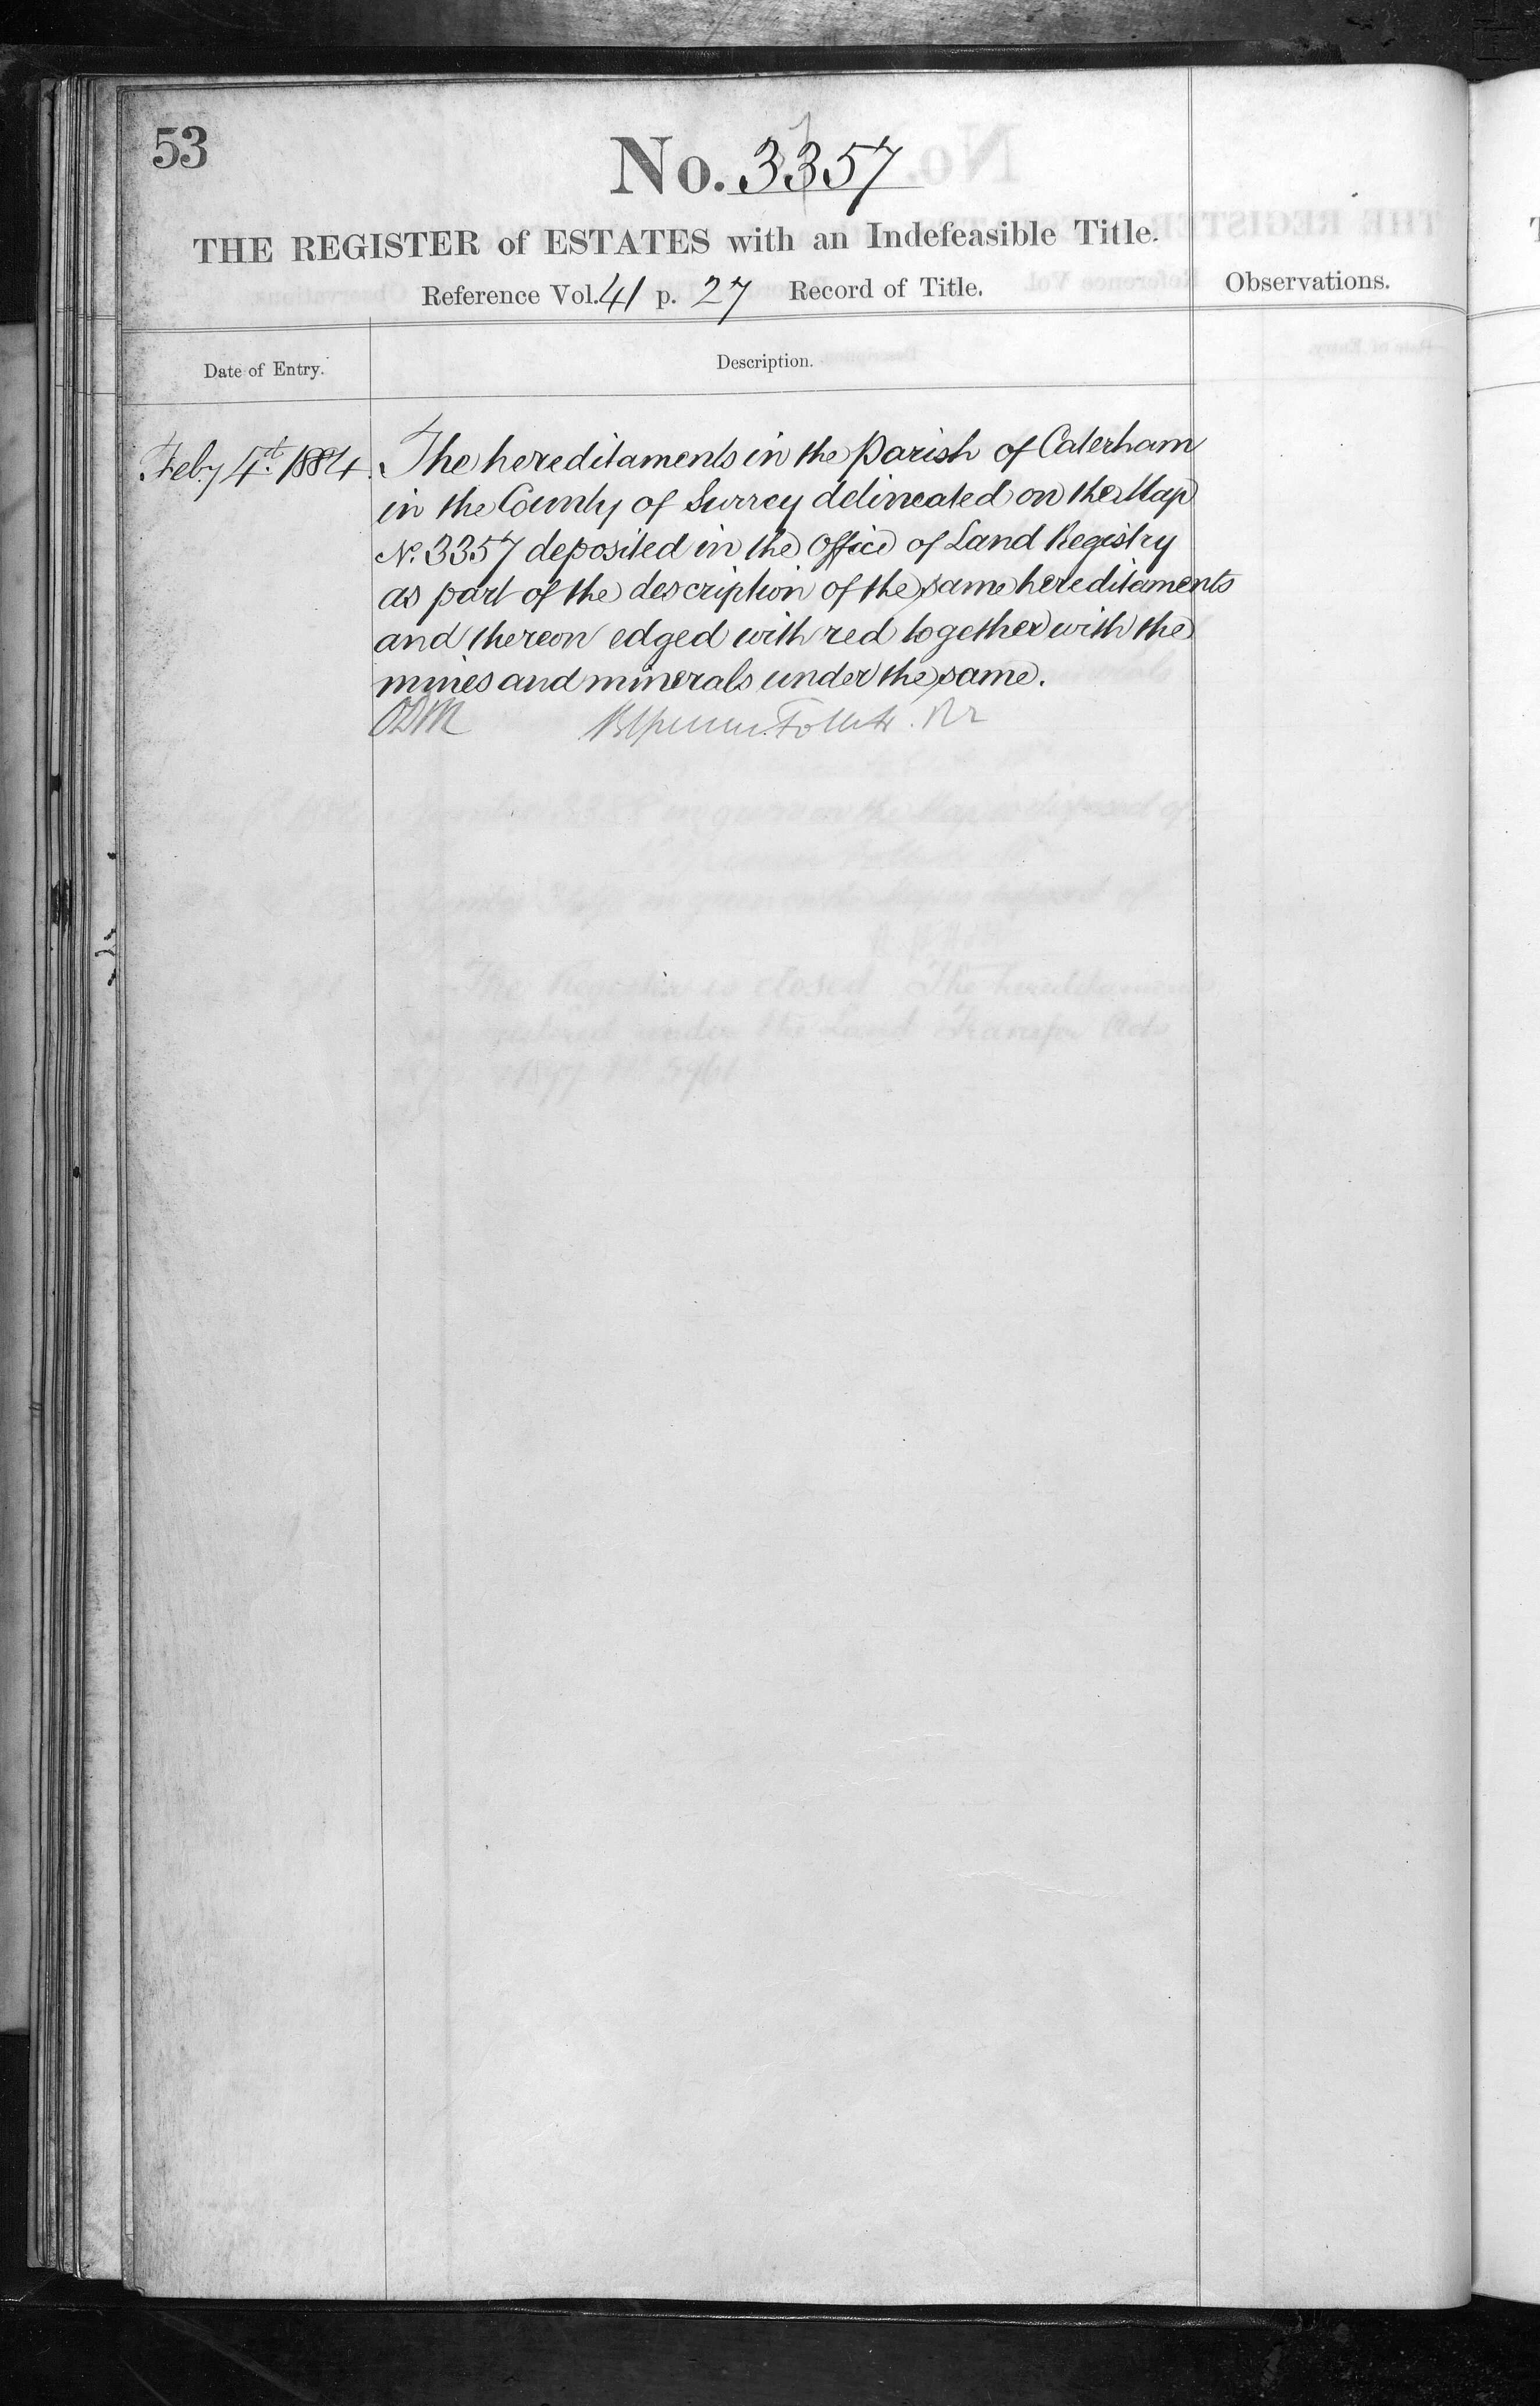 53
No. 3357
THE REGISTER of ESTATES with an Indefeasible Title.
Reference Vol. 41 p. 27 Record of Title.
Observations.
Date of Entry.
Description.
Feby 4th 1884. The hereditaments in the Parish of Caterham
in the County of Surrey delineated on the Map
No. 3357 deposited in the Office of Land Registry
as part of the description of the same hereditaments
and thereon edged with red together with the
mines and minerals under the same.